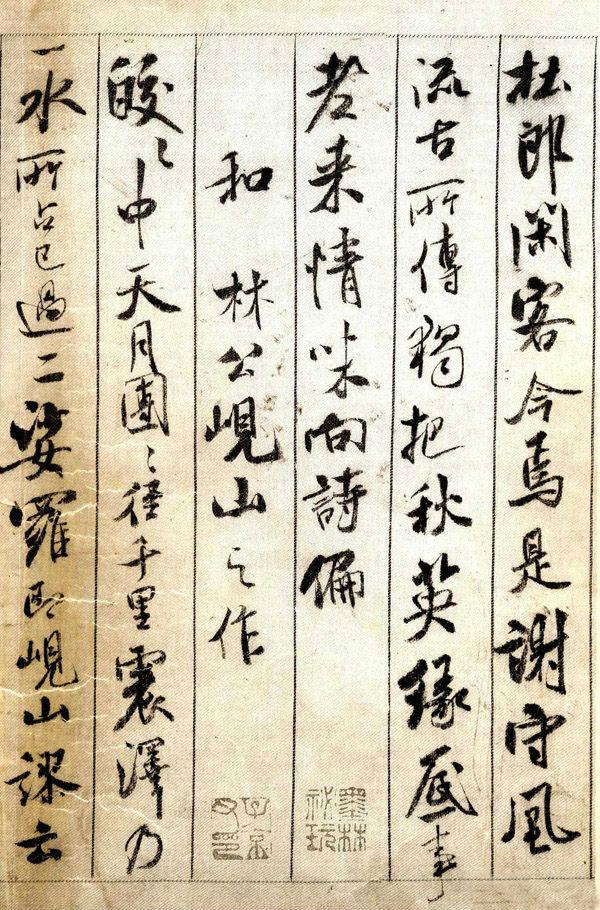 杜郎閑客今焉是謝守風
流古所傳獨把秋英緣底事
老来情味向詩偏
墨林祕玩
和 林公峴山之作
子京父印
皎〻中天月團〻徑千里震澤乃
一水所占已過二娑羅即峴山謬云